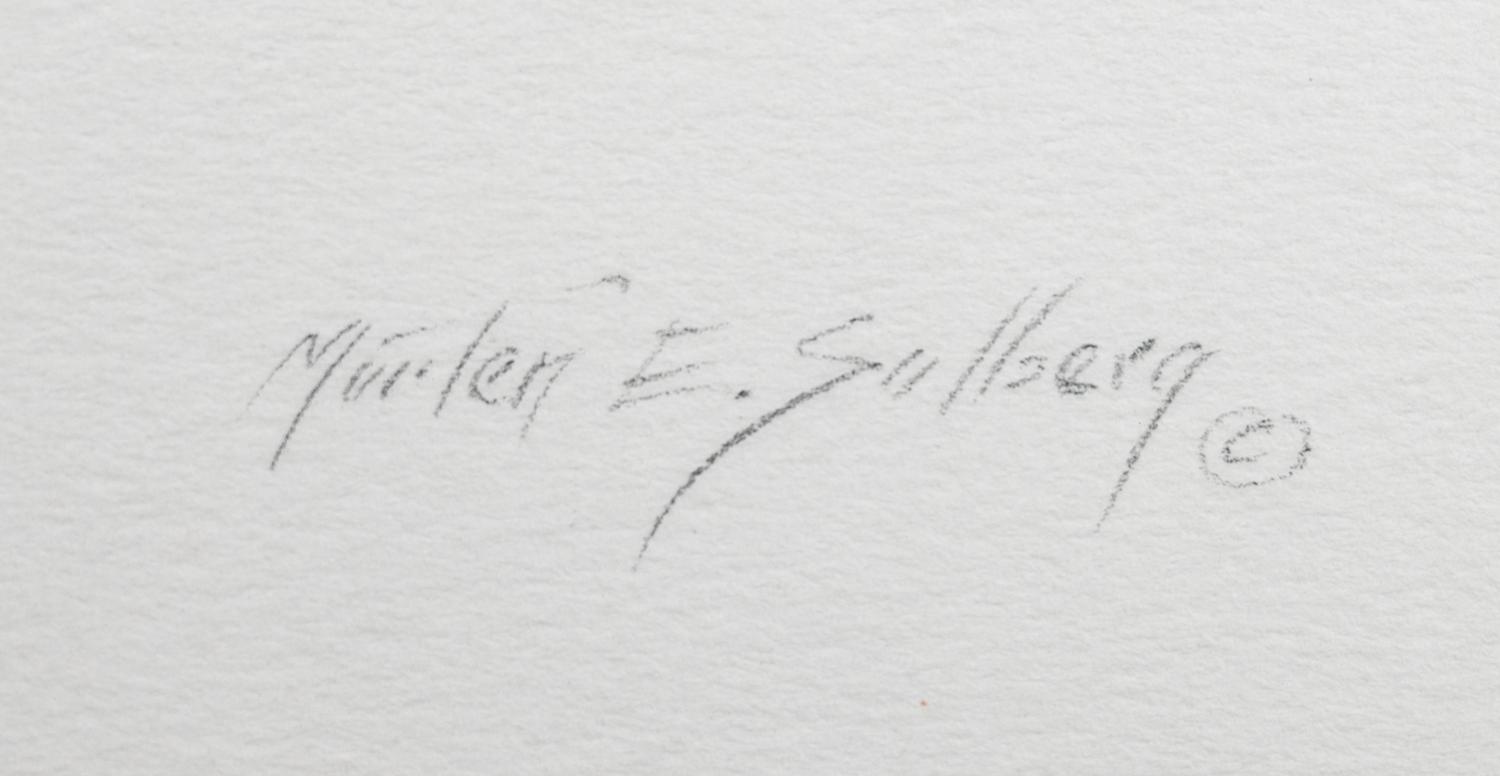 Morten E. Solberg ©